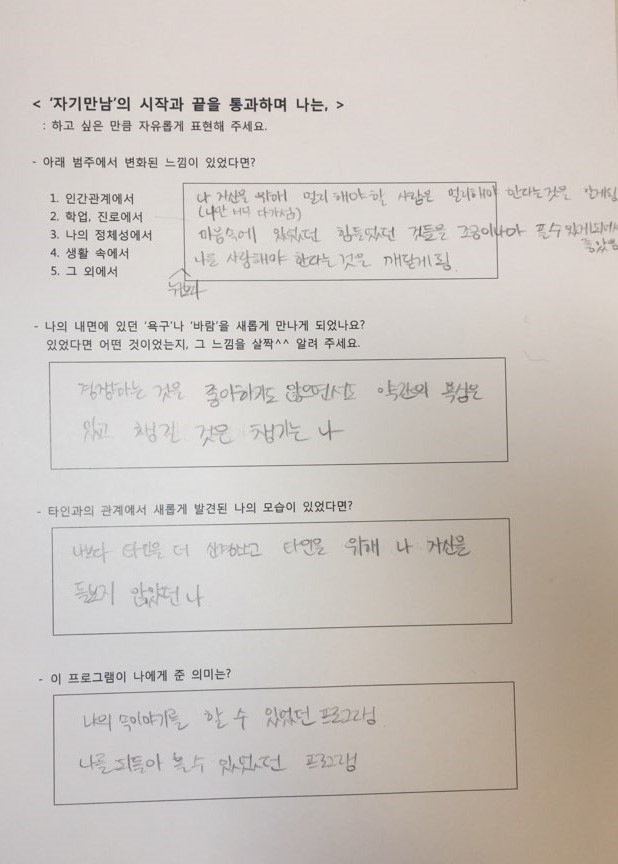 < ‘자기만남’의 시작과 끝을 통과하며 나는, >
: 하고 싶은 만큼 자유롭게 표현해 주세요.
- 아래 범주에서 변화된 느낌이 있었다면?
1. 인간관계에서
2. 학업, 진로에서
3. 나의 정체성에서
4. 생활 속에서
5. 그 외에서
나 자신을 위해 멀리 해야 할 사람은 멀리해야 한다는 것을 알게됨
(나만 너무 다가섬)
마음속에 있었던 힘들었던 것들을 조금이나마 풀 수 있게 되어서
좋았음
나를 사랑해야 한다는 것을 깨닫게 됨.
누구보다
- 나의 내면에 있던 ‘욕구’나 ‘바람’을 새롭게 만나게 되었나요?
있었다면 어떤 것이었는지, 그 느낌을 살짝^^ 알려 주세요.
경쟁하는 것을 좋아하지도 않으면서도 약간의 욕심은
있고 챙길 것은 챙기는 나
- 타인과의 관계에서 새롭게 발견된 나의 모습이 있었다면?
나보다 타인을 더 신경쓰고 타인을 위해 나 자신을
돌보지 않았던 나
- 이 프로그램이 나에게 준 의미는?
나의 속이야기를 할 수 있었던 프로그램.
나를 되돌아 볼 수 있었던 프로그램